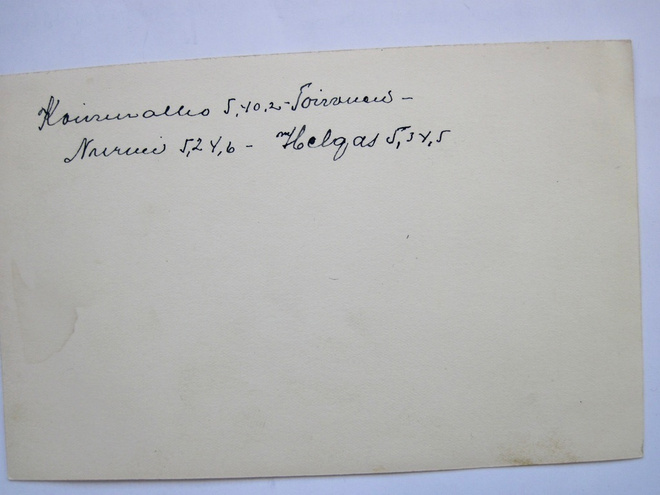 Koivunalho 5,40,2 - Toivonen -
Nurmi 5,24,6 - Helgas 5,34,5